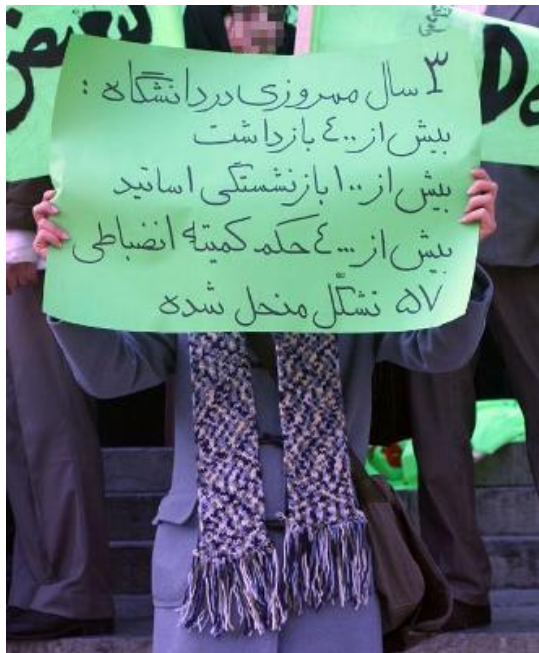 ۳ سال مهروزی در دانشگاه :
بیش از ۴۰۰ بازداشت
بیش از ۱۰۰ بازنشستگی اساتید
بیش از ۴۰۰۰ حکم کمیته انضباطی
۵۷ تشکّل منحل شده